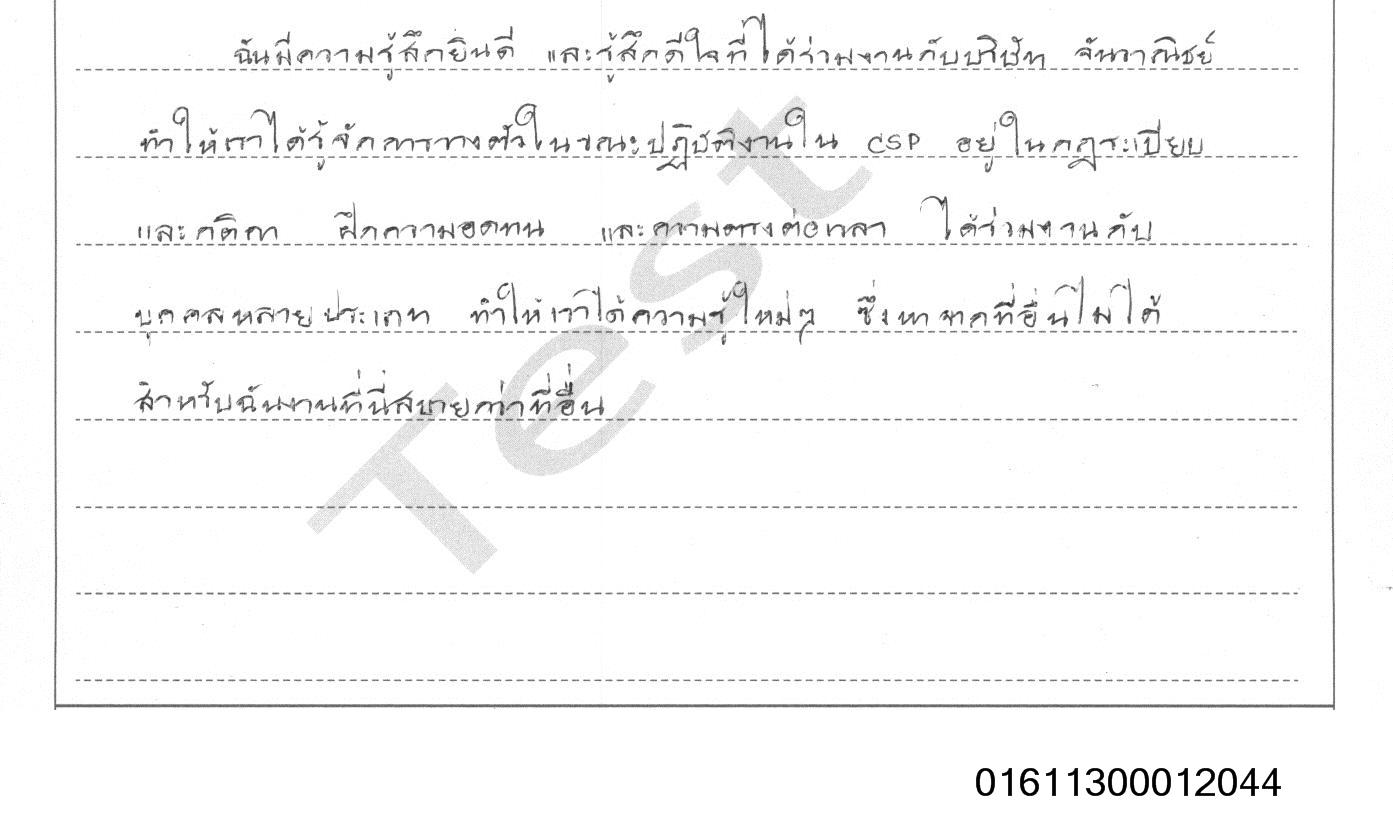 ฉันมีความรู้สึกยินดี และรู้สึกดีใจที่ได้ร่วมงานกับบริษัท จันวาณิชย์
ทำให้เราได้รู้จักการวางตัวในขณะปฏิบัติงานใน CSP อยู่ในกฎระเบียบ
และกติกา ฝึกความอดทน และความตรงต่อเวลา ได้ร่วมงานกับ
บุคคลหลายประเภท ทำให้เราได้ความรู้ใหม่ๆ ซึ่งหาจากที่อื่นไม่ได้
สำหรับฉันงานที่นี่สบายกว่าที่อื่น
Test
01611300012044